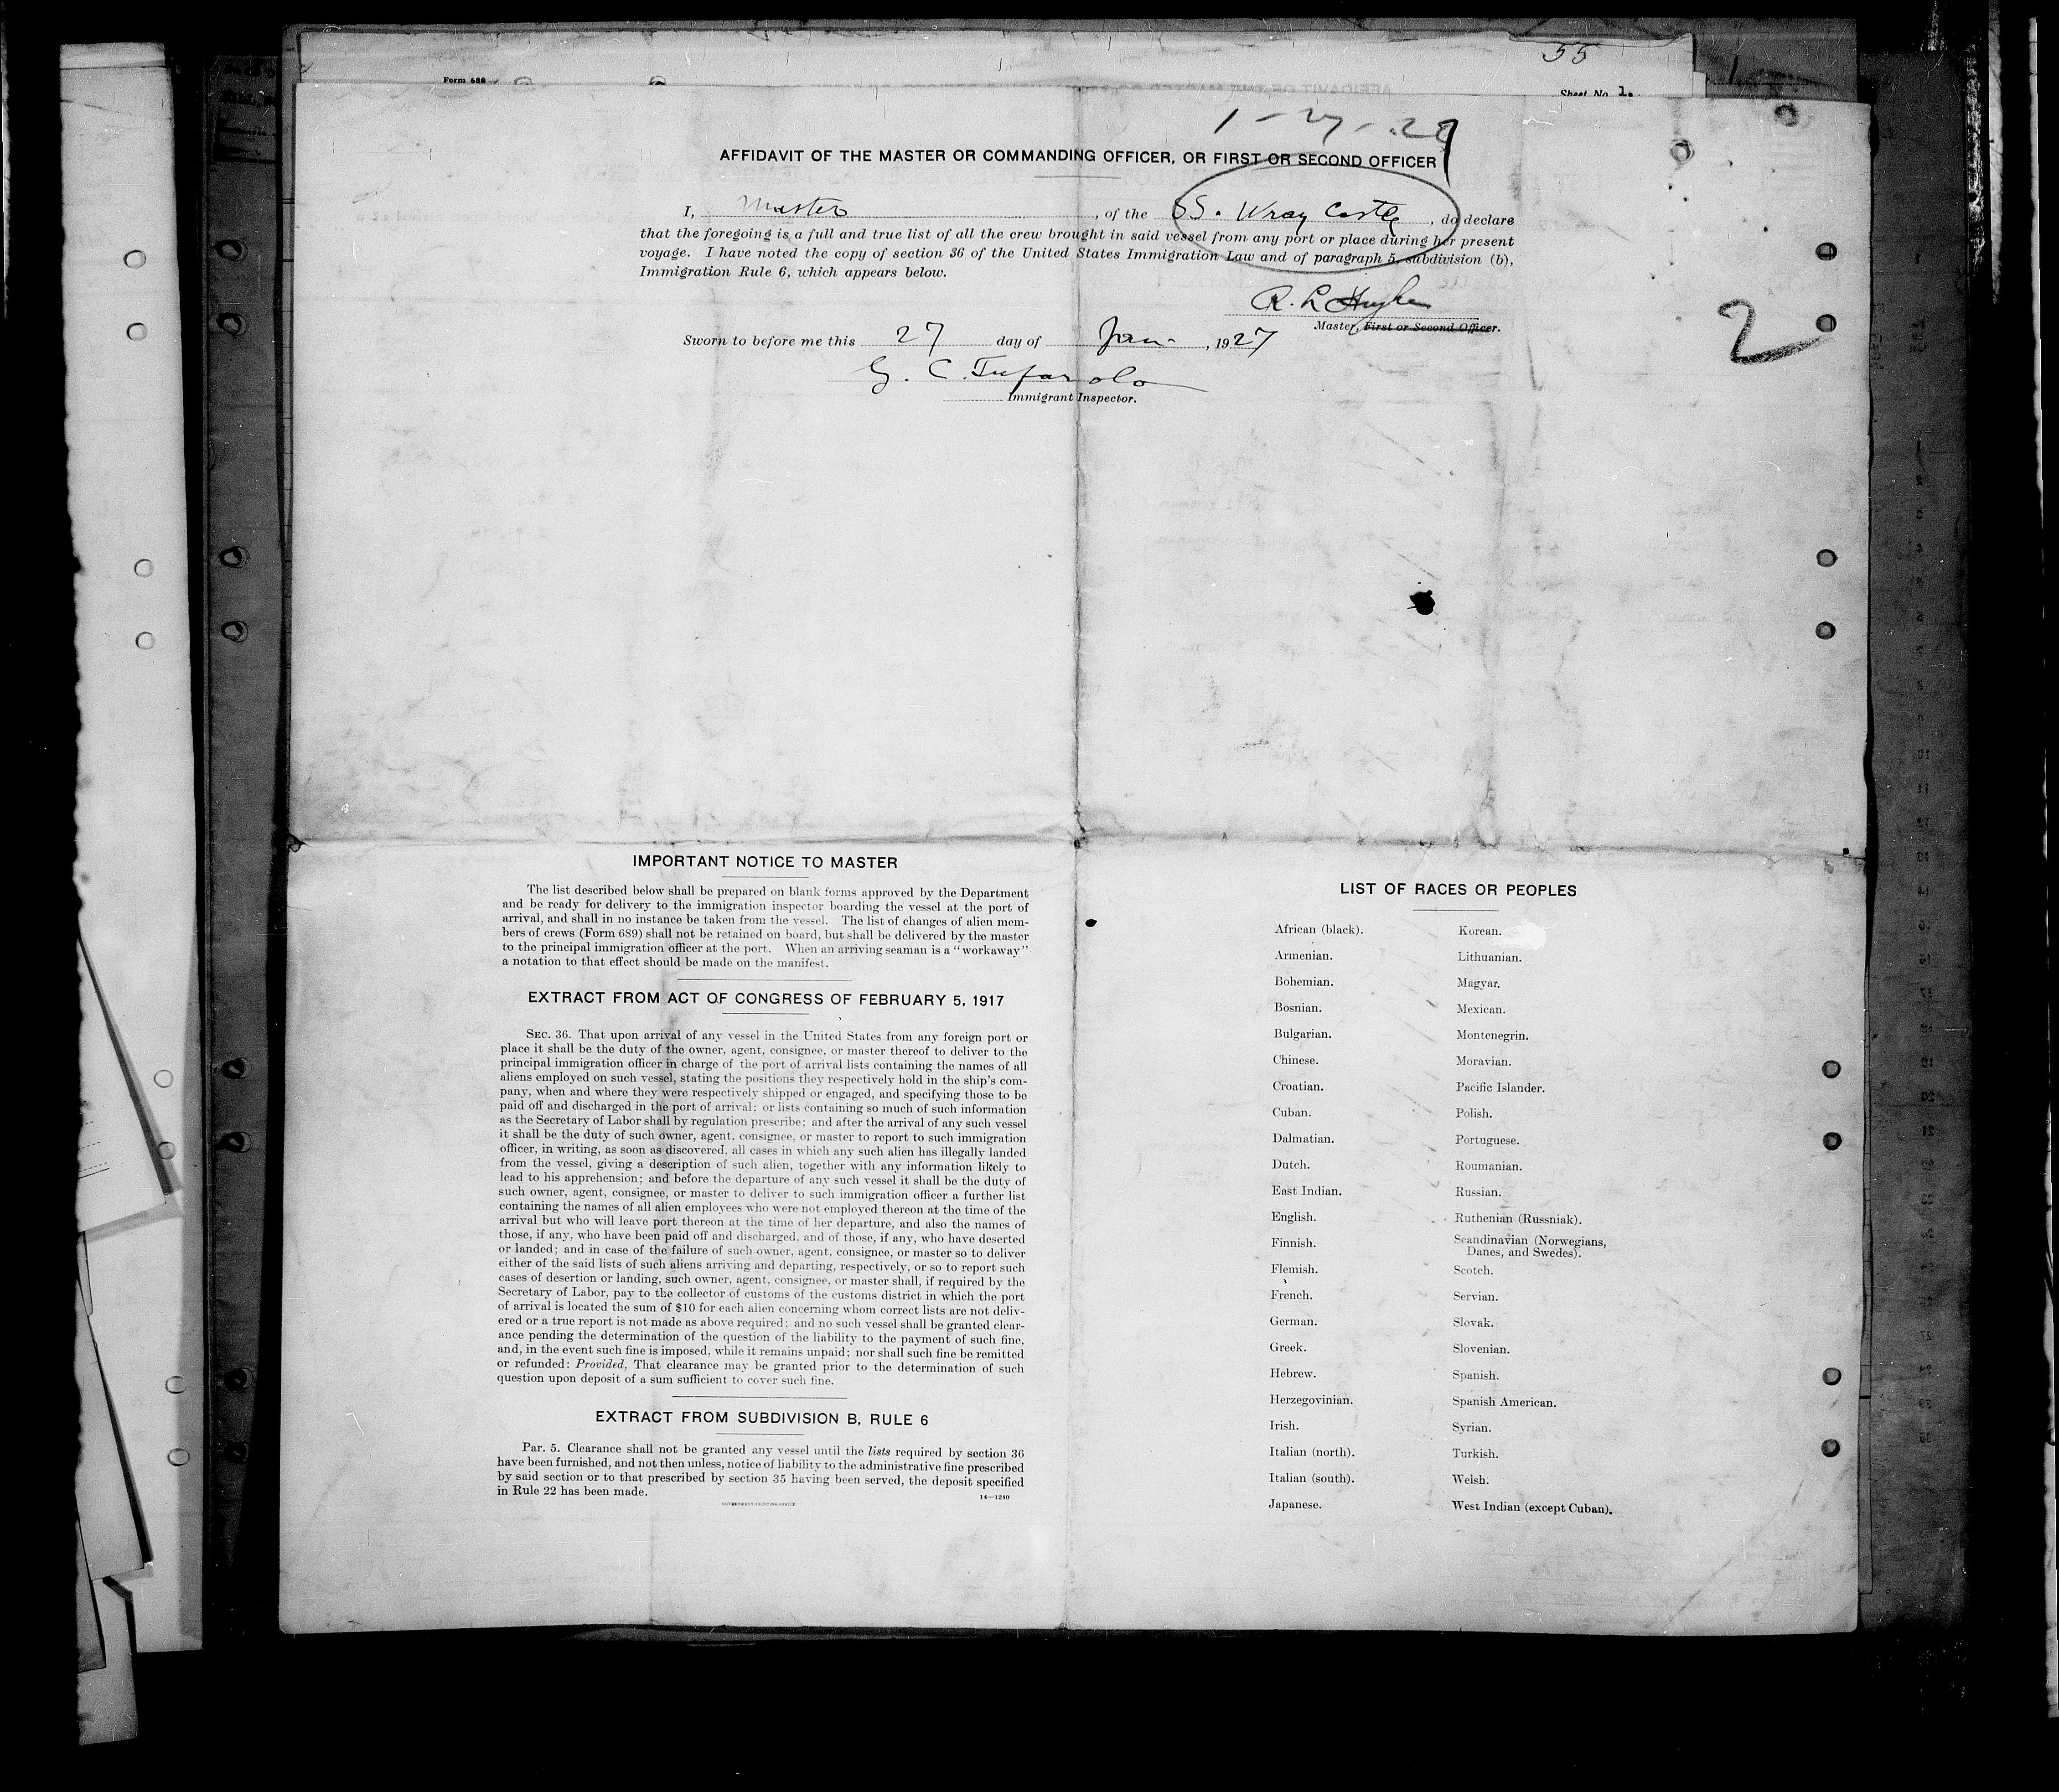 55
Form 680
Sheet No. 1.
1-27-27
AFFIDAVIT OF THE MASTER OR COMMANDING OFFICER, OR FIRST OR SECOND OFFICER
I, Master, of the SS. Wray Castle, do declare
that the foregoing is a full and true list of all the crew brought in said vessel from any port or place during her present
voyage. I have noted the copy of section 36 of the United States Immigration Law and of paragraph 5, subdivision (b),
Immigration Rule 6, which appears below.
R. L. Hughes
Master, First or Second Officer.
2
Sworn to before me this 27 day of Jan., 1927
G. C. Tufarolo
Immigrant Inspector.
IMPORTANT NOTICE TO MASTER
The list described below shall be prepared on blank forms approved by the Department
and be ready for delivery to the immigration inspector boarding the vessel at the port of
arrival, and shall in no instance be taken from the vessel. The list of changes of alien mem-
bers of crews (Form 689) shall not be retained on board, but shall be delivered by the master
to the principal immigration officer at the port. When an arriving seaman is a "workaway"
a notation to that effect should be made on the manifest.
EXTRACT FROM ACT OF CONGRESS OF FEBRUARY 5, 1917
SEC. 36. That upon arrival of any vessel in the United States from any foreign port or
place it shall be the duty of the owner, agent, consignee, or master thereof to deliver to the
principal immigration officer in charge of the port of arrival lists containing the names of all
aliens employed on such vessel, stating the positions they respectively hold in the ship's com-
pany, when and where they were respectively shipped or engaged, and specifying those to be
paid off and discharged in the port of arrival; or lists containing so much of such information
as the Secretary of Labor shall by regulation prescribe; and after the arrival of any such vessel
it shall be the duty of such owner, agent, consignee, or master to report to such immigration
officer, in writing, as soon as discovered, all cases in which any such alien has illegally landed
from the vessel, giving a description of such alien, together with any information likely to
lead to his apprehension; and before the departure of any such vessel it shall be the duty of
such owner, agent, consignee, or master to deliver to such immigration officer a further list
containing the names of all alien employees who were not employed thereon at the time of the
arrival but who will leave port thereon at the time of her departure, and also the names of
those, if any, who have been paid off and discharged, and of those, if any, who have deserted
or landed; and in case of the failure of such owner, agent, consignee, or master so to deliver
either of the said lists of such aliens arriving and departing, respectively, or so to report such
cases of desertion or landing, such owner, agent, consignee, or master shall, if required by the
Secretary of Labor, pay to the collector of customs of the customs district in which the port
of arrival is located the sum of $10 for each alien concerning whom correct lists are not deliv-
ered or a true report is not made as above required; and no such vessel shall be granted clear-
ance pending the determination of the question of the liability to the payment of such fine,
and, in the event such fine is imposed, while it remains unpaid; nor shall such fine be remitted
or refunded: Provided, That clearance may be granted prior to the determination of such
question upon deposit of a sum sufficient to cover such fine.
EXTRACT FROM SUBDIVISION B, RULE 6
Par. 5. Clearance shall not be granted any vessel until the lists required by section 36
have been furnished, and not then unless, notice of liability to the administrative fine prescribed
by said section or to that prescribed by section 35 having been served, the deposit specified
in Rule 22 has been made.
GOVERNMENT PRINTING OFFICE
14—1240
LIST OF RACES OR PEOPLES
African (black).
Armenian.
Bohemian.
Bosnian.
Bulgarian.
Chinese.
Croatian.
Cuban.
Dalmatian.
Dutch.
East Indian.
English.
Finnish.
Flemish.
French.
German.
Greek.
Hebrew.
Herzegovinian.
Irish.
Italian (north).
Italian (south).
Japanese.
Korean.
Lithuanian.
Magyar.
Mexican.
Montenegrin.
Moravian.
Pacific Islander.
Polish.
Portuguese.
Roumanian.
Russian.
Ruthenian (Russniak).
Scandinavian (Norwegians,
Danes, and Swedes).
Scotch.
Servian.
Slovak.
Slovenian.
Spanish.
Spanish American.
Syrian.
Turkish.
Welsh.
West Indian (except Cuban).